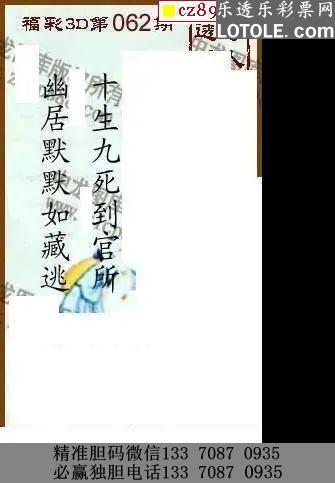 福彩3D第062期
cz89
乐透乐彩票网
LOTOLE.com
十生九死到官所
幽居默默如藏逃
精准胆码微信133 7087 0935
必赢独胆电话133 7087 0935